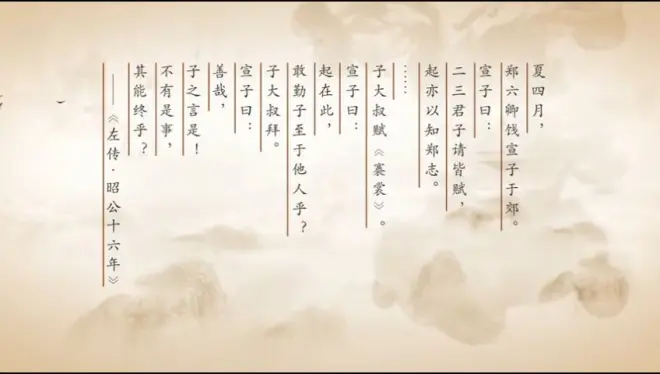 夏四月，
郑六卿饯宣子于郊。
宣子曰：
二三君子请皆赋，
起亦以知郑志。
……
子大叔赋《褰裳》。
宣子曰：
起在此，
敢勤子至于他人乎？
子大叔拜。
宣子曰：
善哉，
子之言是！
不有是事，
其能终乎？
——《左传·昭公十六年》